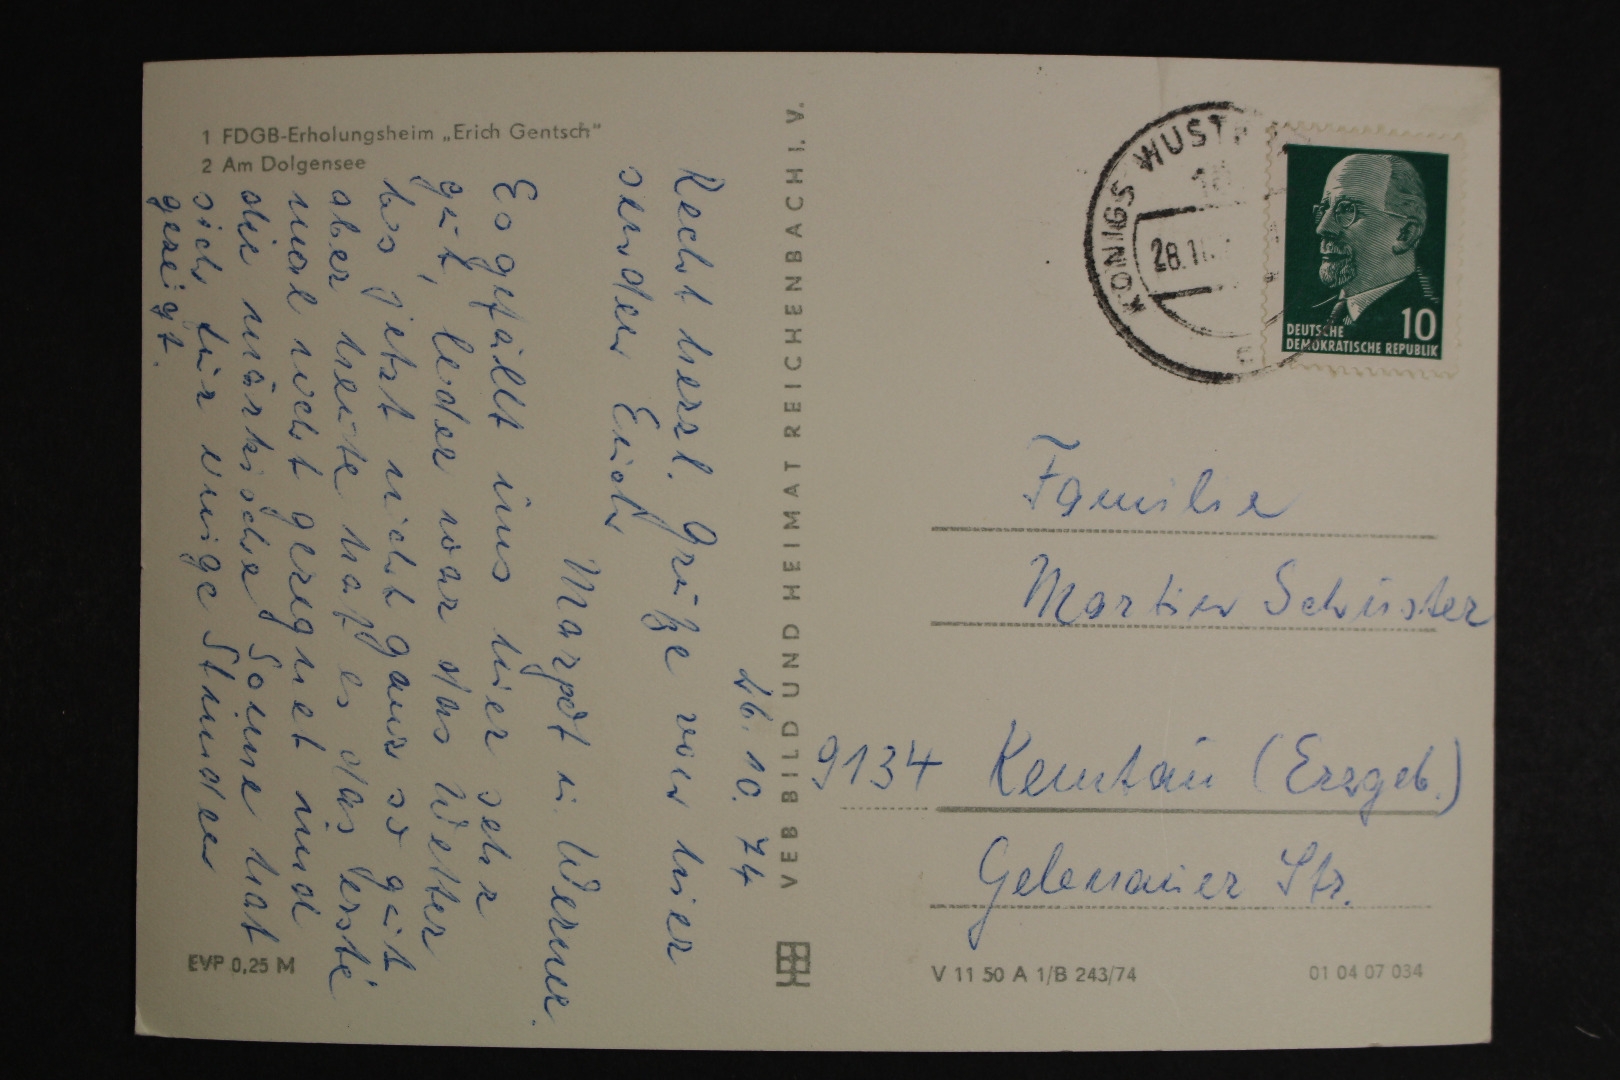 1 FDGB-Erholungsheim „Erich Gentsch“
2 Am Dolgensee
26. 10. 74
Recht herzl. Grüße von hier
senden Euch
Margot u. Werner.
Es gefällt uns hier sehr
gut, leider war das Wetter
bis jetzt nicht ganz so gut
aber heute hat es das erste
mal nicht geregnet und
die märkische Sonne hat
sich für einige Stunden
gezeigt.
EVP 0,25 M
VEB BILD UND HEIMAT REICHENBACH I. V.
KÖNIGS WUST
28.1
10
DEUTSCHE
DEMOKRATISCHE REPUBLIK
Familie
Martin Schuster
9134 Kemtau (Erzgeb.)
Gelenauer Str.
V 11 50 A 1/B 243/74
01 04 07 034